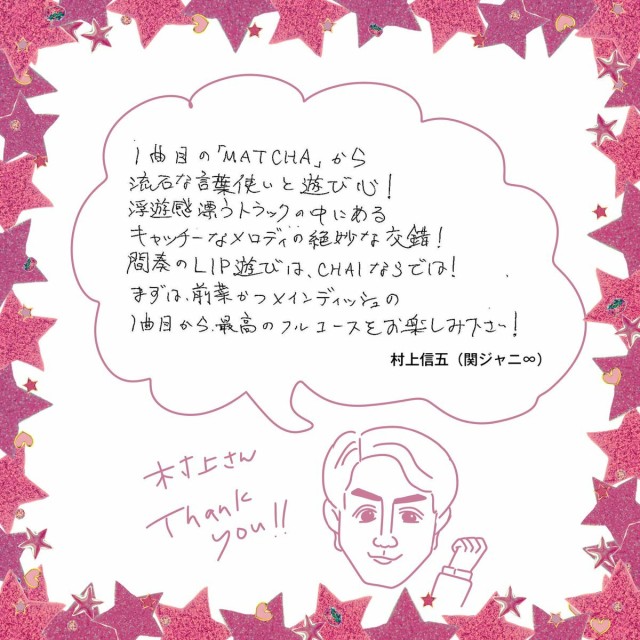 1曲目の「MATCHA」から
流石な言葉使いと遊び心!
浮遊感漂うトラックの中にある
キャッチーなメロディの絶妙な交錯!
間奏のLIP遊びは、CHAIならでは!
まずは、前菜かつメインディッシュの
1曲目から、最高のフルコースをお楽しみ下さい!
村上信五(関ジャニ∞)
村上さん
Thank
you!!